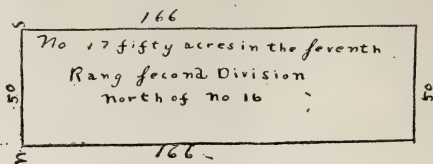 166
S
No 17 fifty acres in the seventh
Rang second Division
north of no 16
50
50
n
166